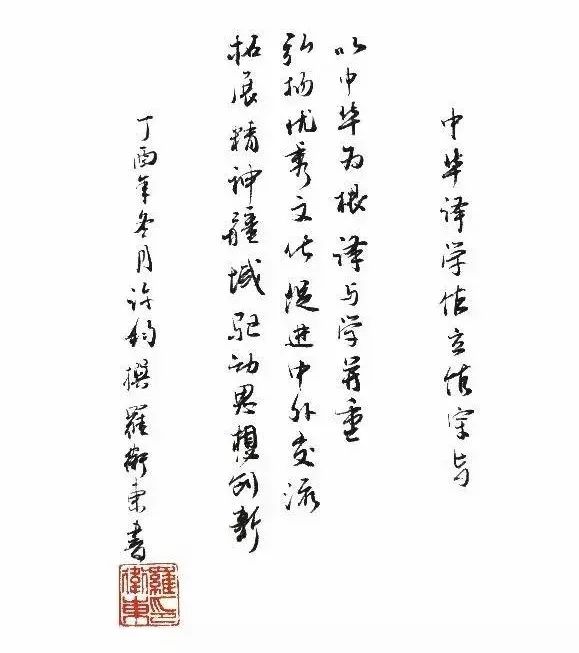 中华译学馆立馆宗旨
以中华为根 译与学并重
弘扬优秀文化 促进中外交流
拓展精神疆域 驱动思想创新
丁酉年冬月 许钧撰 罗卫东书
羅衛東印